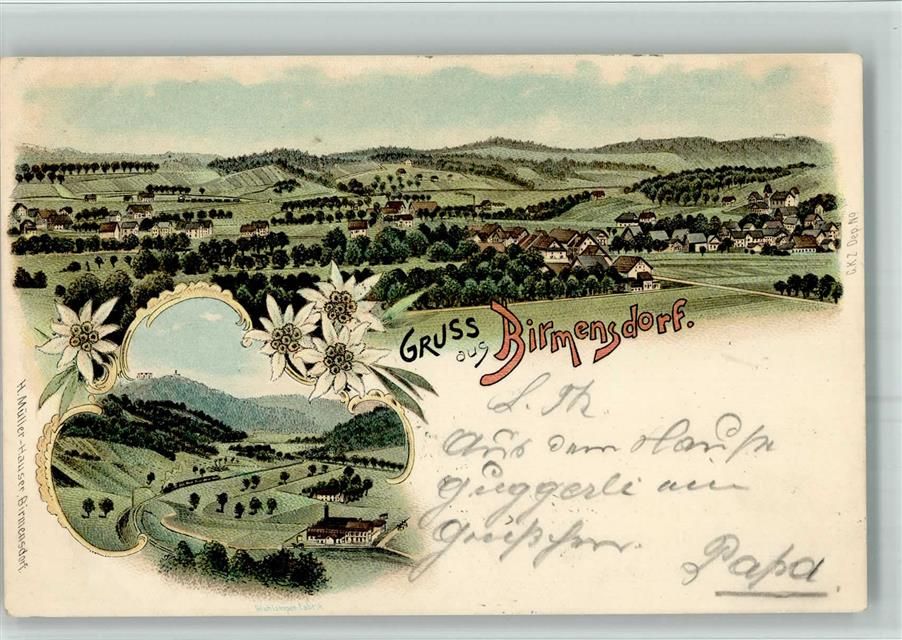 GRUSS
aus
Birmensdorf.
L. Th.
Aus dem Hause
Guggerli ein
Grüsschen.
Papa
H. Müller-Hauser, Birmensdorf.
G.K.Z. Dep. No
Glühlampen-Fabrik